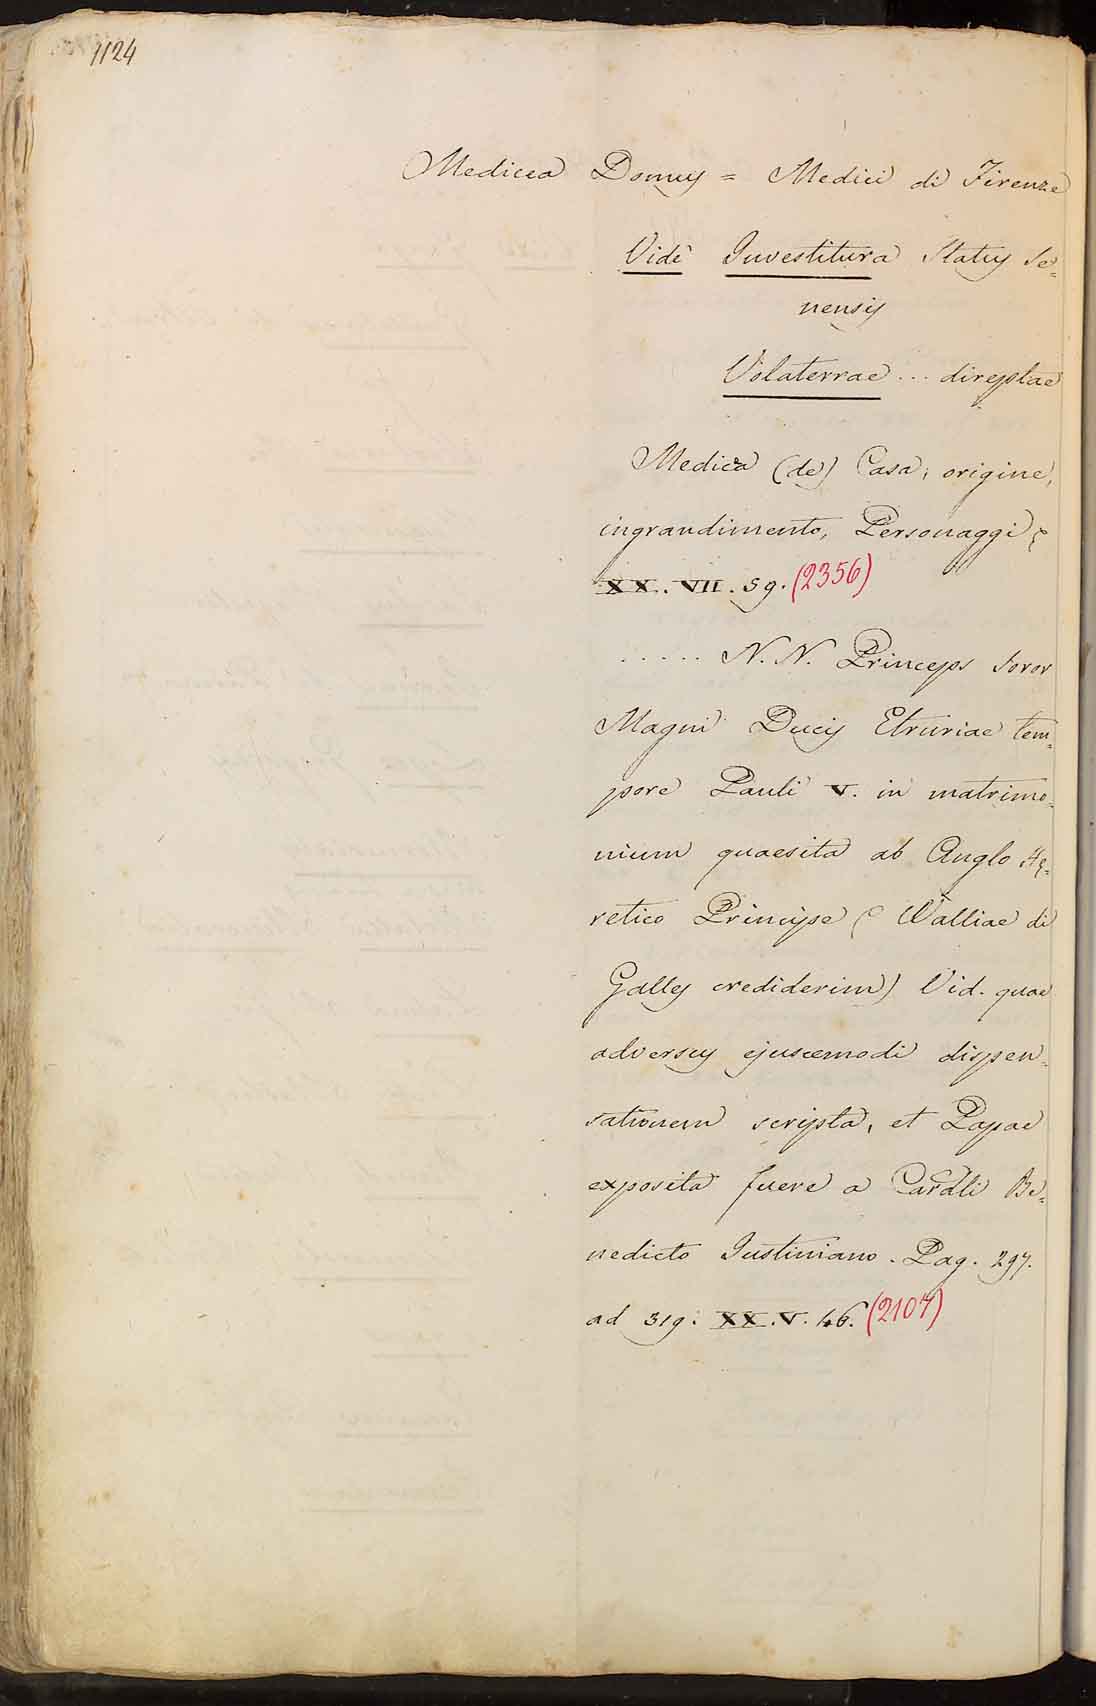 1124
Medicea Domus = Medici di Firenze
Vide Investitura Status Se=
nensis
Volaterrae ... direptae
Medica (de) Casa, origine,
ingrandimento, Personaggi
XX. VII. 59. (2356)
..... N. N. Princeps Soror
Magni Ducis Etruriae tem=
pore Pauli V. in matrimo=
nium quaesita ab Anglo He=
retico Principe (Walliae di
Galles crediderim) Vid. quae
adversus ejuscemodi dispen=
sationem scripta, et Papae
exposita fuere a Cardli Be=
nedicto Iustiniano. Pag. 297.
ad 319: XX. V. 46. (2107)